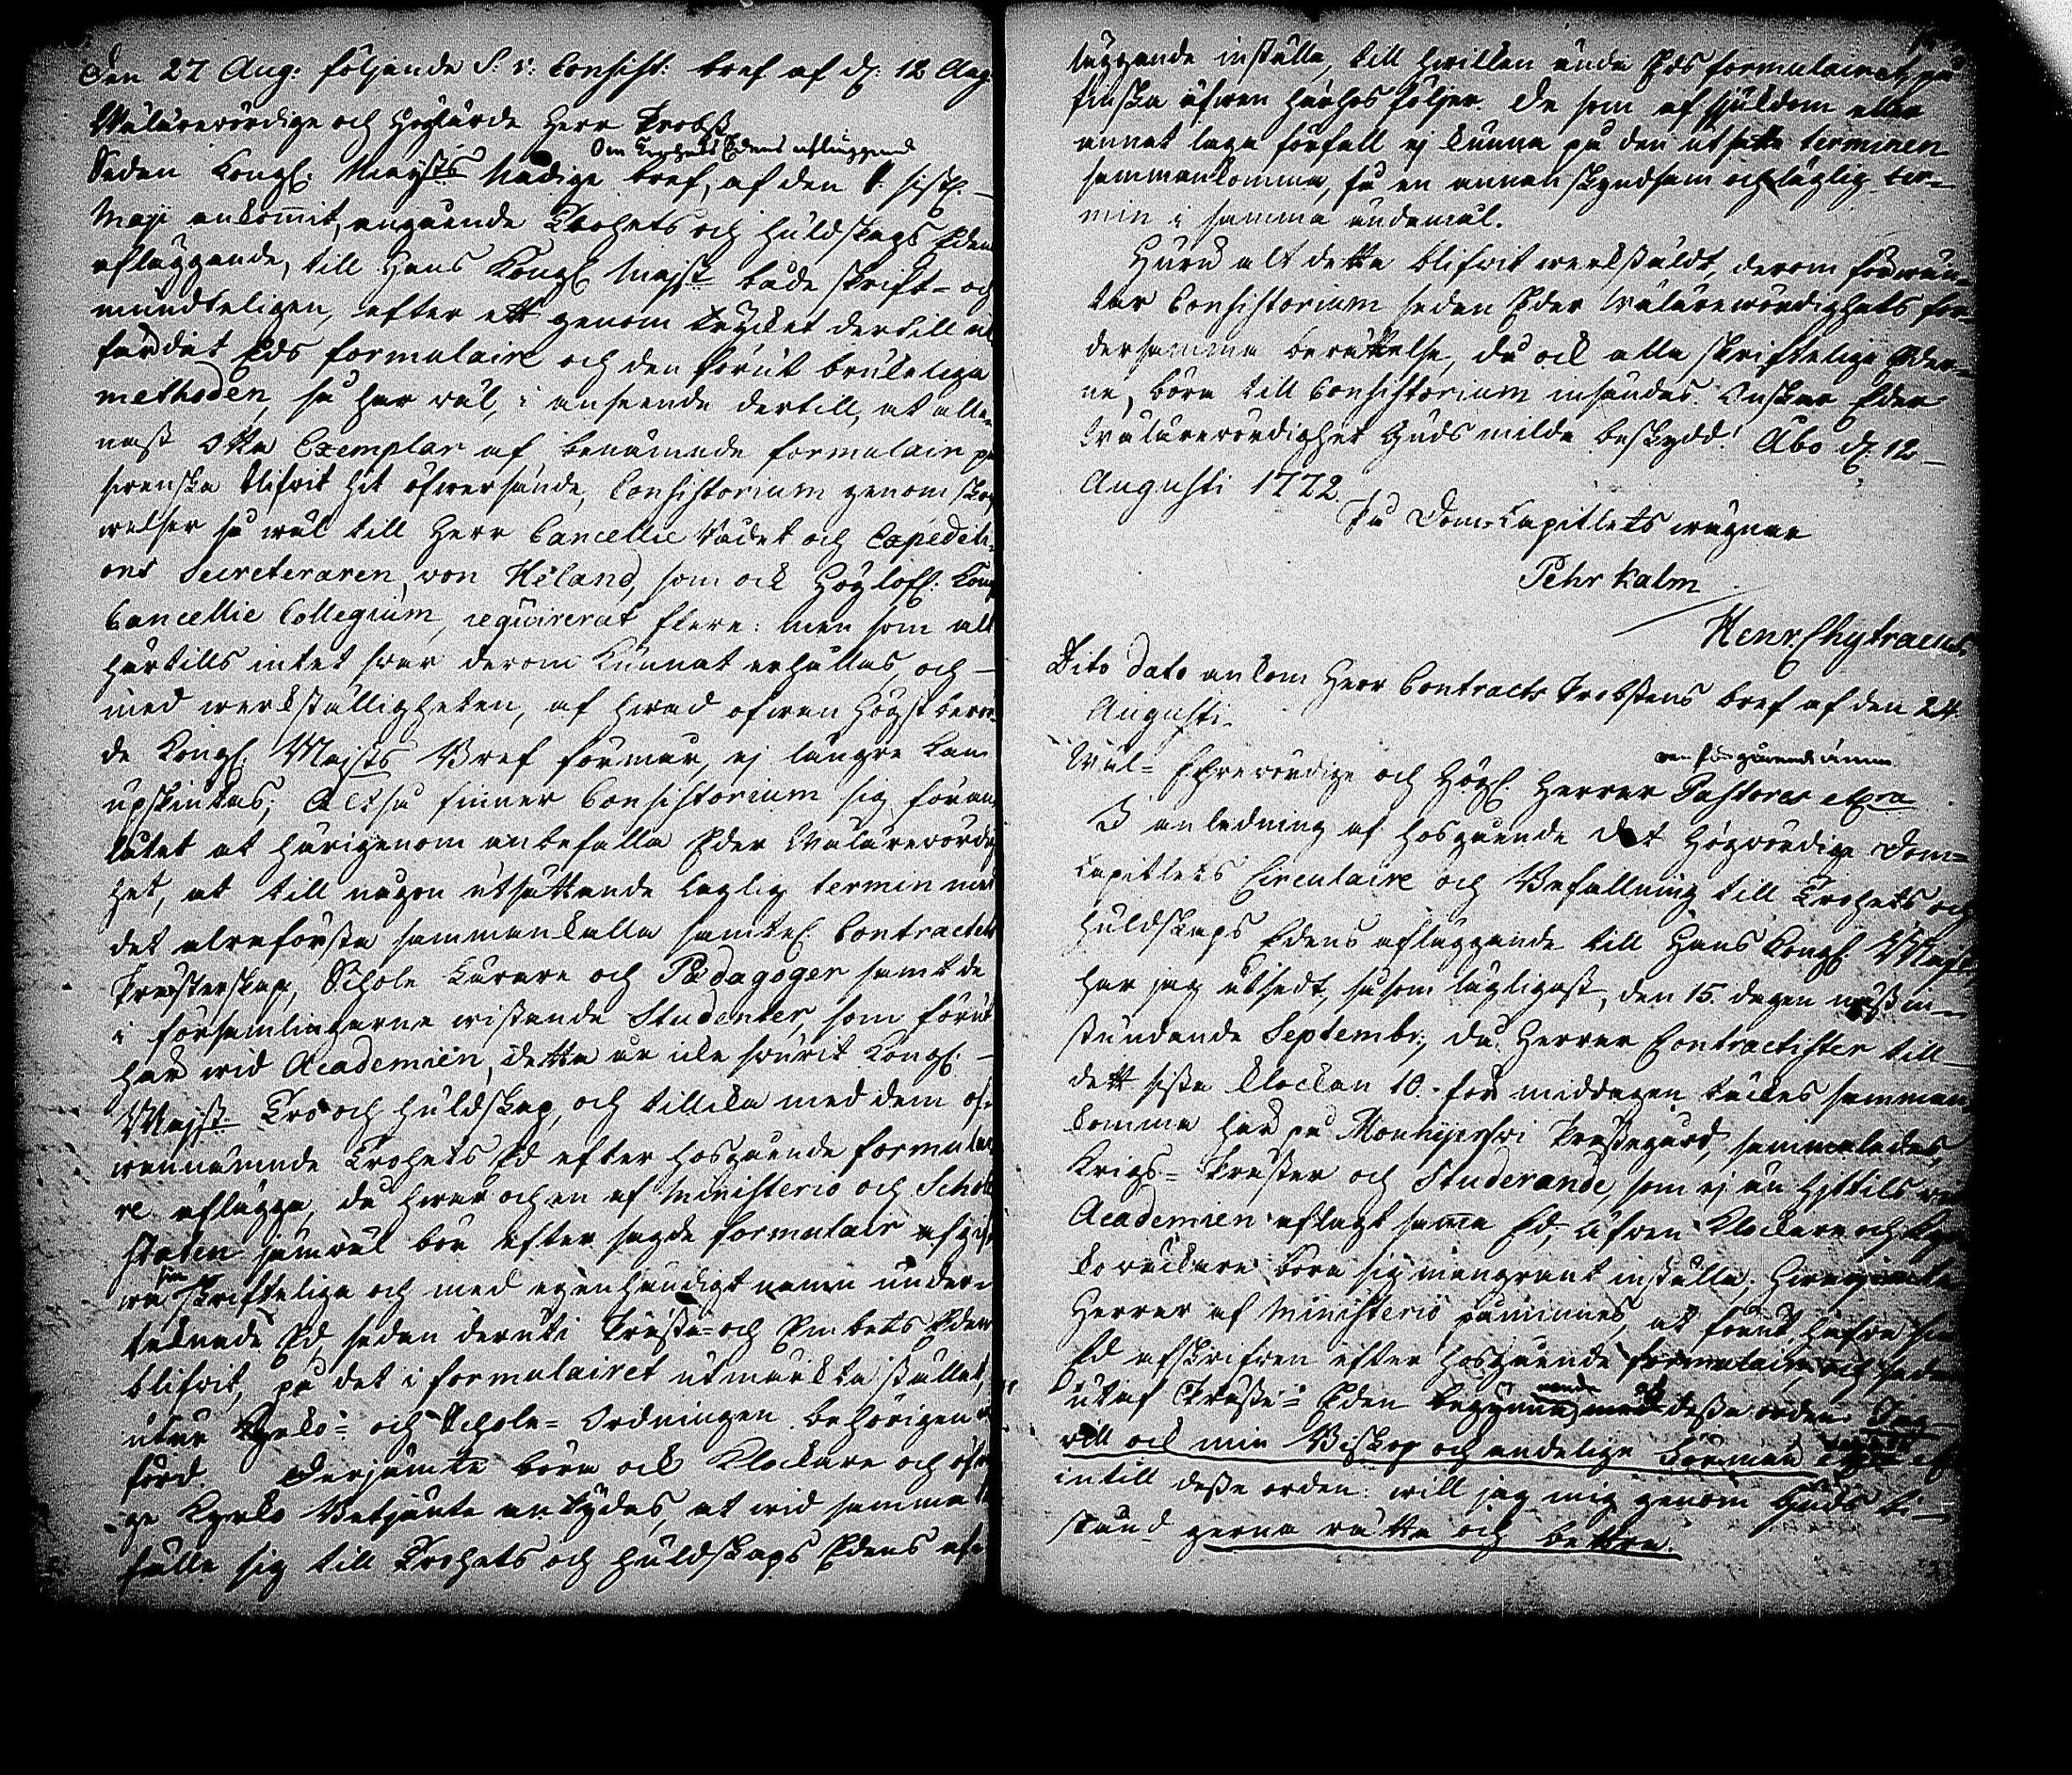 Den 27 Aug: följande S: v: Consist: bref af d: 12 Aug:
Wälärewördige och Höglärde Herr Probst
Om Trohets Edens afläggend
Sedan Kongl: Maij:ts Nådige bref, af den 1. sistl. –
Maji ankom̄it, angående Trohets och huldskaps Eden
afläggande, till Hans Kongl Maj:st både skrift- och
mundteligen, efter ett genom trycket dertill ut
färdat Eds formulaire och den förut brukeliga
methoden, så har wäl, i anseende dertill, at alle-
nast Otta Exemplar af benämnde formulair på
swenska blifwit hit öfwersände, Consistorium genom skrif
welser så wäl till Herr Cancellie Rådet och Expediti-
ons Secreteraren, von Heland, som ock Höglofl: Kong
Cancellie Collegium, requirerat flere: men som alt
härtills intet swar derom kunnat erhållas, och –
med werkställigheten, af hwad ofwan högstberör-
de Kongl: Maj:sts Bref förmår, ej längre kan
upskiutas; Altså finner Consistorium sig föran-
låtet at härigenom anbefalla Eder Wälärewördig
het, at till någon utsättande laglig termin med
det alraförsta sammankalla samtel. Contractets
Prästerskap, Schole Lärare och Pædagoger samt de
i församlingarne wistande Studenter, som förut
här wid Academien, detta år icke swurit Kongl: –
Maj:st Tro och huldskap, och tillika med dem of-
wannämnde Trohets Ed efter hosgående formulai
re aflägga, då hwar och en af Ministerio och Schole
staten jämwäl bör efter sagde formulair afgif
wa sin skrifteliga och med egenhändigt namn under-
teknade Ed, sedan deruti Präste- och Embets Eden
blifwit, på det i formulairet utmärkta stället,
utur Kyrko- och Schole- Ordningen behörigen in
förd. Derjämte böra ock Klockare och öfri
ge Kyrko Betjänte antydas, at wid samma til
fälle sig till Trohets och huldskaps Edens af-
läggande inställa, till hwilken ända Eds formulairet på
finska äfwen härhos följer. De som af sjukdom eller
annat laga förfall ej kunna på den utsatte terminen
sammankomma, få en annan skyndsam och läglig ter-
min i samma ändamål.
Huru alt detta blifwit werkstäldt, derom förwän-
tar Consistorium sedan Eder Wälärewördighets for-
dersamma berättelse, då ock alla skrifteliga Eder-
ne, böra till Consistorium insändas. Önskar Eder
Wälärewördighet Guds milda beskydd! Åbo d: 12 –
Augusti 1772.
På Dom-Capitlets wägnar
Pehr Kalm
Henr. Chytraeus
Dito dato ankom Herr Contracts Probstens bref af den 24.
Augusti.
Wäl- Ehrewördige och Högl: Herrar Pastores
I anledning af hosgående det Högwördige Dom-
Capitlets Circulaire och Befallning till Trohets och
huldskaps Edens afläggande till Hans Kongl: Maj:st,
har jag utsedt, såsom lägligast, den 15. dagen näst in-
stundande Septembr:, då Herrar Contractister till –
dett sista klockan 10. för middagen täcktes samman-
komma här på Mouhijerfwi Prästegård, sammaledes,
Krigs- Präster och Studerande, som ej än hittils wid
Academien aflagt sam̄a Ed, äfwen Klockare och Kyr
kowäcktare böra sig mangrant inställa;
Herrar af Ministerio påminnes, at förut hafwa sin
Ed afskrifwen efter hosgående formulair, och sedan
utaf Präste- Eden begynna, med dessa orden: Jag –
will ock min Biskop och andelige Förman
intill dessa orden: will jag mig genom Guds bi-
stånd gerna rätta och bettra.